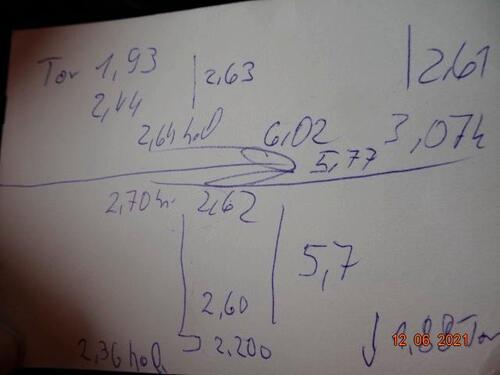 Tor 1,93
2,63
2,61
2,44
2,64 hol
6,02
3,07h
5,77
2,70 hi
2,62
5,7
2,60
2,36 hol
2.200
1,88 Tor
12 06 2021